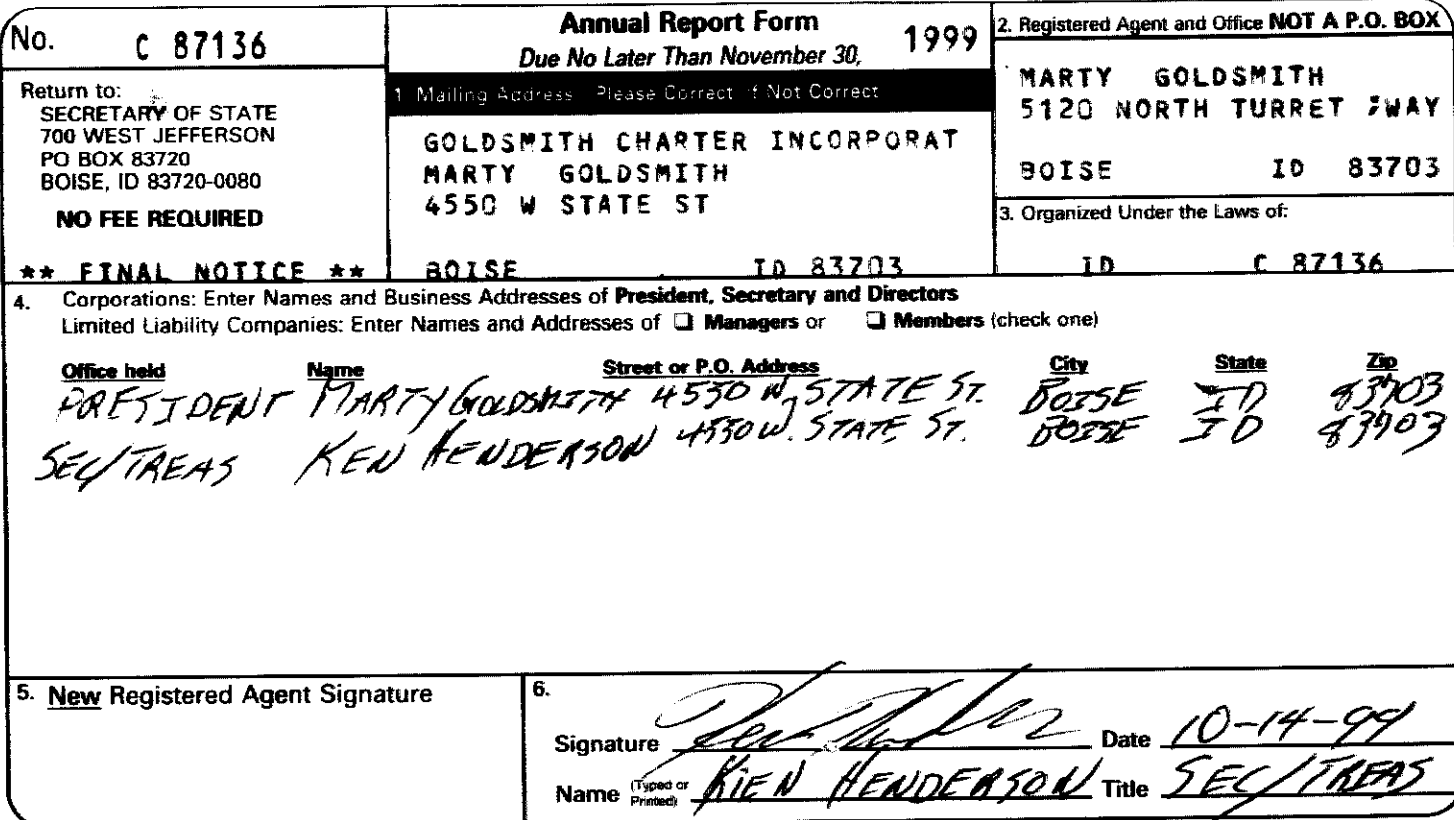 No. C 87136
Return to:
SECRETARY OF STATE
700 WEST JEFFERSON
PO BOX 83720
BOISE, ID 83720-0080
NO FEE REQUIRED
** FINAL NOTICE **
Annual Report Form 1999
Due No Later Than November 30,
1 Mailing Address Please Correct If Not Correct
GOLDSMITH CHARTER INCORPORAT
MARTY GOLDSMITH
4550 W STATE ST
BOISE ID 83703
2. Registered Agent and Office NOT A P.O. BOX
MARTY GOLDSMITH
5120 NORTH TURRET WAY
BOISE ID 83703
3. Organized Under the Laws of:
ID C 87136
4. Corporations: Enter Names and Business Addresses of President, Secretary and Directors
Limited Liability Companies: Enter Names and Addresses of ❑ Managers or ❑ Members (check one)
Office held Name Street or P.O. Address City State Zip
PRESIDENT MARTY GOLDSMITH 4550 W. STATE ST. BOISE ID 83703
SEC/TREAS KEN HENDERSON 4550 W. STATE ST. BOISE ID 83703
5. New Registered Agent Signature
6.
Signature Date 10-14-99
Name (Typed or Printed) KIEN HENDERSON Title SEC/TREAS